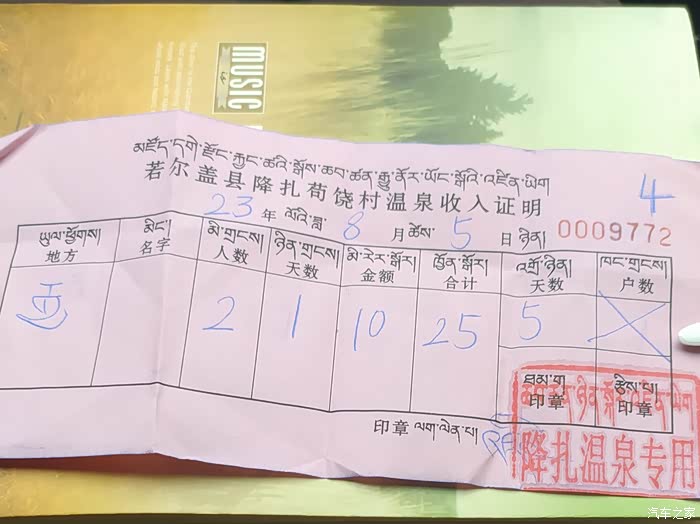 MUSIC
མཛོད་དགེ་རྫོང་རྒྱང་ཚའི་སྒོས་ཆབ་ཚན་རྒྱུ་ནོར་ཡོང་སྒོའི་འཛིན་ཡིག
若尔盖县降扎苟饶村温泉收入证明
4
23 年 ལོའི་ཟླ་ 8 月 ཚེས་ 5 日 ཉིན། 0009772
ཡུལ་ཕྱོགས། མིང་། མི་གྲངས། ཉིན་གྲངས། མི་རེར་སྒོར། ཁྱོན་སྒོར། འགྲོ་ཉིན། ཁང་གྲངས།
地方 名字 人数 天数 金额 合计 天数 户数
2 1 10 25 5
ཐམ་ག ཚིས་པ།
印章 印章
印章 ལག་ལེན་པ།
降扎温泉专用
汽车之家